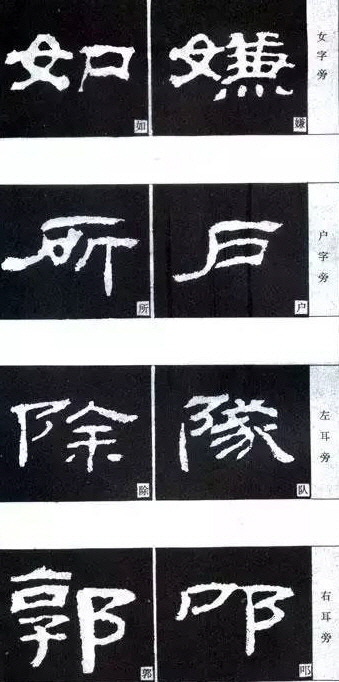 女字旁
嫌 嫌
如 如
户字旁
户 户
所 所
左耳旁
隊 队
除 除
右耳旁
叩
郭 郭